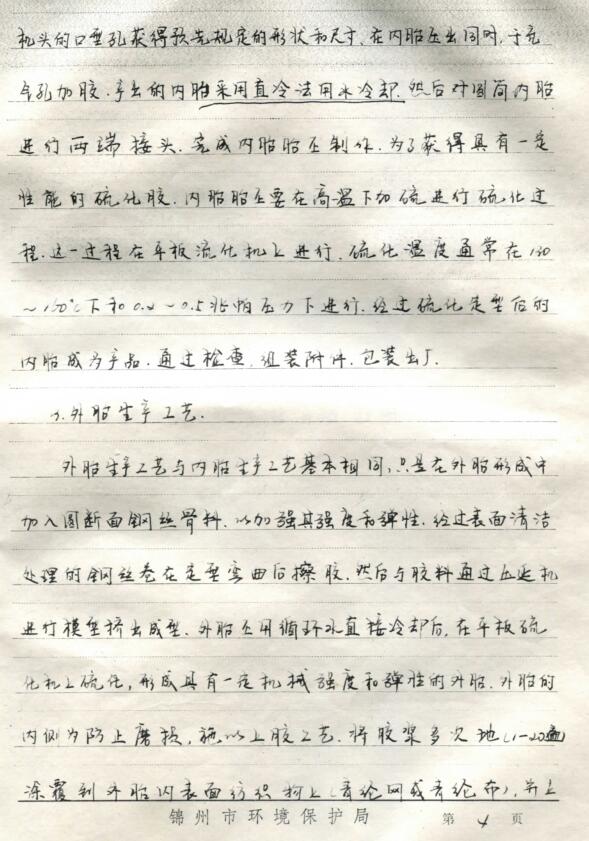 机头的口型孔获得预先规定的形状和尺寸.在内胎压出同时,于充
气孔加胶.予出的内胎采用直冷法用水冷却.然后对圆筒内胎
进行两端接头.完成内胎胎坯制作.为了获得具有一定
性能的硫化胶.内胎胎坯要在高温下加硫进行硫化过
程.这一过程在平板流化机上进行.硫化温度通常在130
~160℃下和0.2~0.5兆帕压力下进行.经过硫化定型后的
内胎成为产品.通过检查.组装附件.包装出厂.
2.外胎生产工艺.
外胎生产工艺与内胎生产工艺基本相同,只是在外胎形成中
加入圆断面钢丝骨料.以加强其强度和弹性.经过表面清洁
处理的钢丝卷在定型弯曲后擦胶.然后与胶料通过压延机
进行模型挤出成型.外胎坯用循环水直接冷却后,在平板硫
化机上硫化,形成具有一定机械强度和弹性的外胎.外胎的
内侧为防止磨损,施以上胶工艺.将胶浆多次地(1-20遍)
涂覆到外胎内表面纺织物上(青纶网或青纶布),并上
锦州市环境保护局 第 4 页